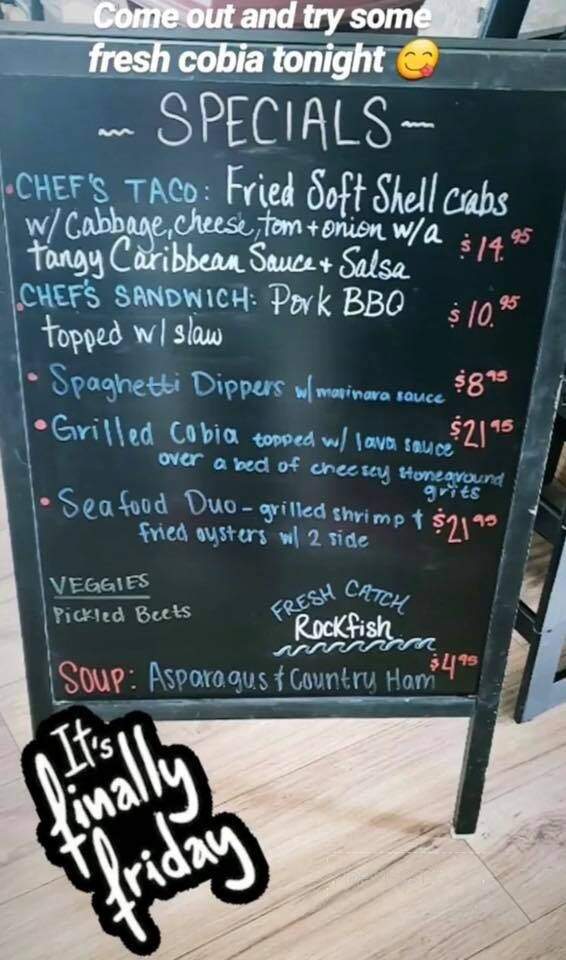 Come out and try some
fresh cobia tonight 😋
~ SPECIALS ~
• CHEF'S TACO: Fried Soft Shell crabs
w/ Cabbage, cheese, tom + onion w/a
tangy Caribbean Sauce + Salsa $14.95
• CHEF'S SANDWICH: Pork BBQ $10.95
topped w/ slaw
• Spaghetti Dippers w/ marinara sauce $8.95
• Grilled Cobia topped w/ lava sauce $21.95
over a bed of cheesey stoneground
grits
• Seafood Duo - grilled shrimp + $21.95
fried oysters w/ 2 side
VEGGIES
Pickled Beets
FRESH CATCH
Rockfish
SOUP: Asparagus & Country Ham $4.95
It's
finally
friday